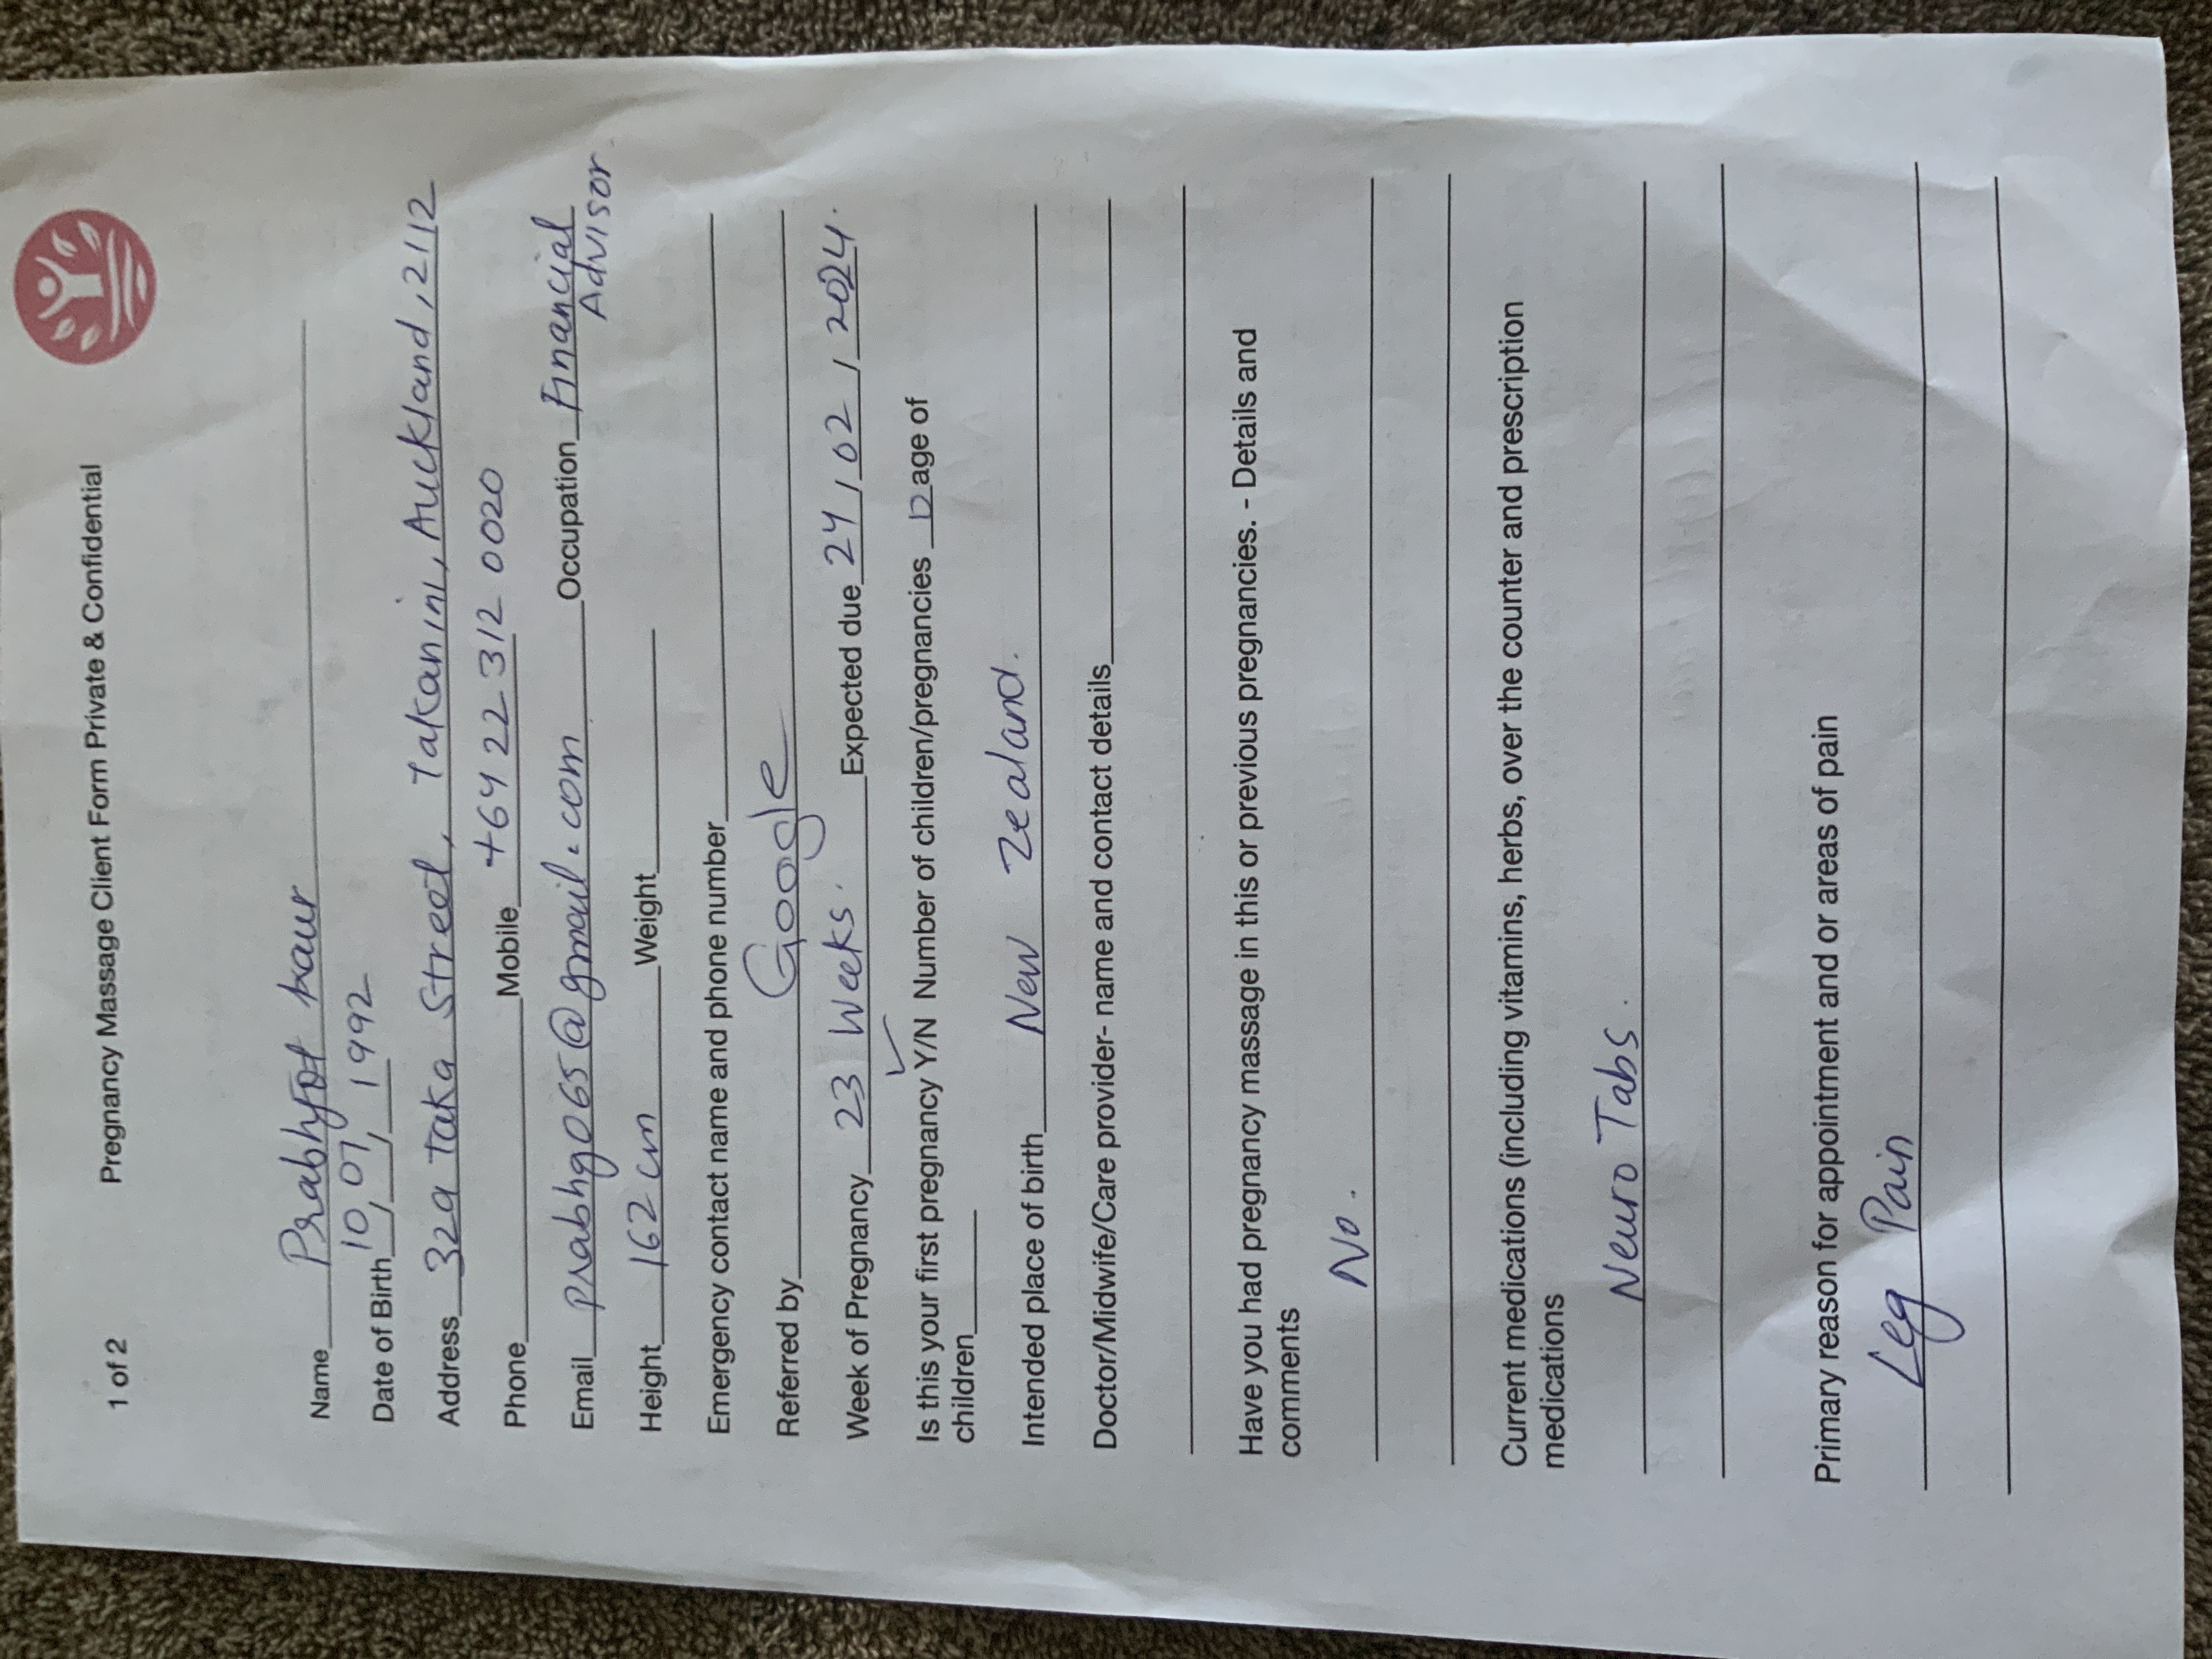 1 of 2 Pregnancy Massage Client Form Private & Confidential
Name Prabhjot kaur
Date of Birth 10, 07, 1992
Address 32a Taka Street, Takanini, Auckland, 2112
Phone Mobile +64 22 312 0020
Email prabhg065@gmail.com Occupation Financial Advisor
Height 162 cm Weight
Emergency contact name and phone number
Referred by Google
Week of Pregnancy 23 Weeks. Expected due 24, 02, 2024.
Is this your first pregnancy Y/N Number of children/pregnancies age of
children
Intended place of birth New Zealand.
Doctor/Midwife/Care provider- name and contact details
Have you had pregnancy massage in this or previous pregnancies. - Details and
comments
No.
Current medications (including vitamins, herbs, over the counter and prescription
medications
Neuro Tabs.
Primary reason for appointment and or areas of pain
Leg Pain